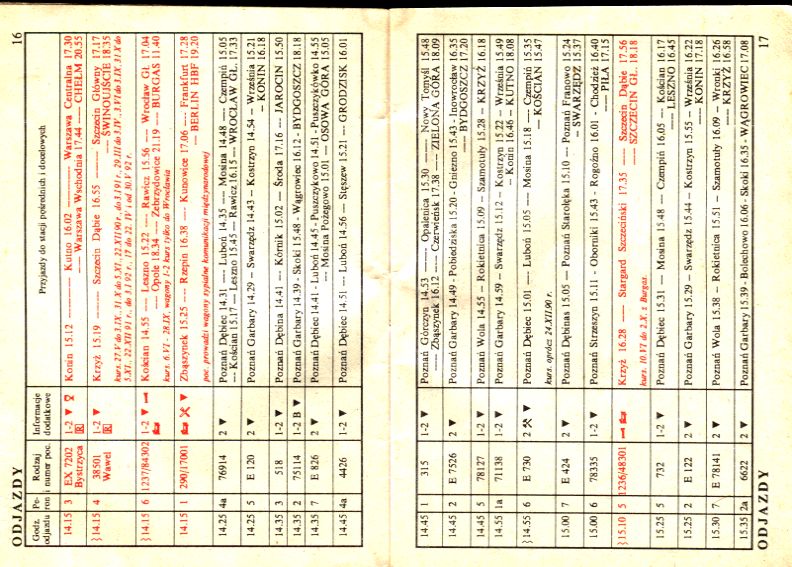 16
ODJAZDY
Godz. odjazdu Pe-ron Rodzaj i numer poc. Informacje dodatkowe Przyjazdy do stacji pośrednich i docelowych
14.15 3 EX 7202 Bystrzyca 1-2 R Konin 15.12 —— Kutno 16.02 —— Warszawa Centralna 17.30
—— Warszawa Wschodnia 17.44 —— CHEŁM 20.55
14.15 4 38501 Wawel 1-2 R Krzyż 15.19 —— Szczecin Dąbie 16.55 —— Szczecin Główny 17.17
—— ŚWINOUJŚCIE 18.35
14.15 6 1237/84302 1-2 Kościan 14.55 —— Leszno 15.22 —— Rawicz 15.56 —— Wrocław Gł. 17.04
—— Opole 18.34 —— Zebrzydowice 21.19 —— BURGAS 11.40
kurs. 6.VI - 28.IX, wagony 1-2 kurs tylko do Wrocławia
14.15 1 290/17001 Zbąszynek 15.25 —— Rzepin 16.38 —— Kunowice 17.06 —— Frankfurt 17.28
—— BERLIN HBF 19.20
poc. prowadzi wagony sypialne komunikacji międzynarodowej
14.25 4a 76914 2 Poznań Dębiec 14.31 — Luboń 14.35 — Mosina 14.48 — Czempiń 15.05
— Kościan 15.17 — Leszno 15.45 — Rawicz 16.15 — WROCŁAW GŁ. 17.33
14.25 5 E 120 2 Poznań Garbary 14.29 – Swarzędz 14.43 – Kostrzyn 14.54 – Września 15.21
– KONIN 16.18
14.35 3 518 1-2 Poznań Dębina 14.41 — Kórnik 15.02 — Środa 17.16 — JAROCIN 15.50
14.35 2 75114 1-2 B Poznań Garbary 14.39 - Skoki 15.48 - Wągrowiec 16.12 - BYDGOSZCZ 18.18
14.35 7 E 826 2 Poznań Dębiec 14.41 - Luboń 14.45 - Puszczykowo 14.51 - Puszczykówko 14.55
— Mosina Pożegowo 15.01 — OSOWA GÓRA 15.05
14.45 4a 4426 1-2 Poznań Dębiec 14.51 — Luboń 14.56 — Stęszew 15.21 — GRODZISK 16.01
14.45 1 315 1-2 Poznań Górczyn 14.53 —— Opalenica 15.30 —— Nowy Tomyśl 15.48
—— Zbąszynek 16.12 —— Czerwieńsk 17.38 —— ZIELONA GÓRA 18.09
14.45 2 E 7526 2 Poznań Garbary 14.49 - Pobiedziska 15.20 - Gniezno 15.43 - Inowrocław 16.35
— BYDGOSZCZ 17.20
14.45 5 78127 1-2 Poznań Wola 14.55 – Rokietnica 15.09 – Szamotuły 15.28 – KRZYŻ 16.18
14.55 1a 71138 1-2 Poznań Garbary 14.59 – Swarzędz 15.12 – Kostrzyn 15.22 – Września 15.49
– Konin 16.46 – KUTNO 18.08
14.55 6 E 730 2 Poznań Dębiec 15.01 — Luboń 15.05 — Mosina 15.18 — Czempiń 15.35
— KOŚCIAN 15.47
kurs. oprócz 24.XII.90 r.
15.00 7 E 424 2 Poznań Dębina 15.05 — Poznań Starołęka 15.10 — Poznań Franowo 15.24
— SWARZĘDZ 15.37
15.00 6 78335 1-2 Poznań Strzeszyn 15.11 - Oborniki 15.43 - Rogoźno 16.01 - Chodzież 16.40
— PIŁA 17.15
15.10 5 1236/48301 Krzyż 16.28 —— Stargard Szczeciński 17.35 —— Szczecin Dąbie 17.56
—— SZCZECIN GŁ. 18.18
kurs. 10.VI do 2.X z Burgas.
15.25 5 732 1-2 Poznań Dębiec 15.31 — Mosina 15.48 — Czempiń 16.05 — Kościan 16.17
— LESZNO 16.45
15.25 2 E 122 2 Poznań Garbary 15.29 – Swarzędz 15.44 – Kostrzyn 15.55 – Września 16.22
– KONIN 17.18
15.30 7 E 78141 2 Poznań Wola 15.38 – Rokietnica 15.51 – Szamotuły 16.09 – Wronki 16.26
– KRZYŻ 16.58
15.35 2a 6622 2 Poznań Garbary 15.39 - Bolechowo 16.06 - Skoki 16.35 - WĄGROWIEC 17.08
ODJAZDY
17